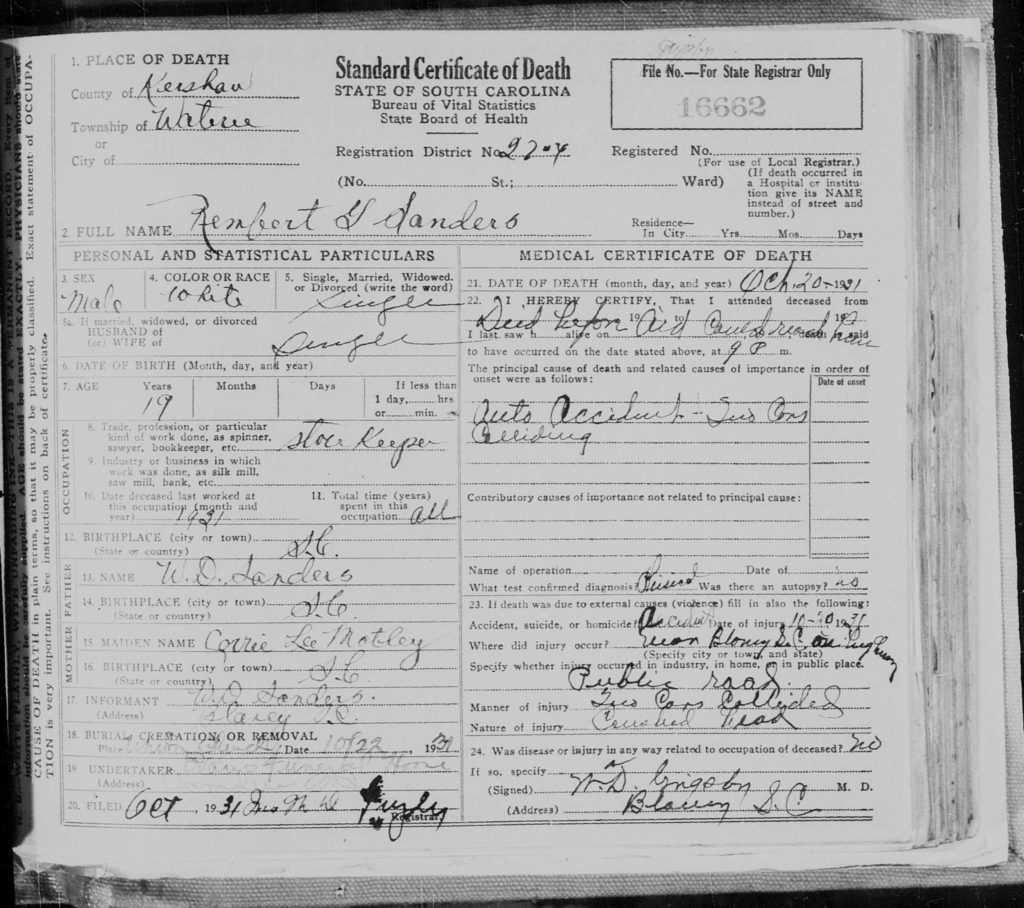 1. PLACE OF DEATH
County of Kershaw
Township of Wateree
or
City of
Standard Certificate of Death
STATE OF SOUTH CAROLINA
Bureau of Vital Statistics
State Board of Health
Registration District No. 27-4
(No. St.; Ward)
File No.—For State Registrar Only
16662
Registered No.
(For use of Local Registrar.)
(If death occurred in
a Hospital or institu-
tion give its NAME
instead of street and
number.)
2. FULL NAME G Sanders
Residence—
In City Yrs. Mos. Days
PERSONAL AND STATISTICAL PARTICULARS
3. SEX
Male
4. COLOR OR RACE
White
5. Single, Married, Widowed,
or Divorced (write the word)
Single
5a. If married, widowed, or divorced
HUSBAND of
(or) WIFE of
Single
6. DATE OF BIRTH (Month, day, and year)
7. AGE Years Months Days If less than
1 day, hrs
or min.
19
OCCUPATION
8. Trade, profession, or particular
kind of work done, as spinner,
sawyer, bookkeeper, etc. Store Keeper
9. Industry or business in which
work was done, as silk mill,
saw mill, bank, etc.
10. Date deceased last worked at
this occupation (month and
year) 1931
11. Total time (years)
spent in this
occupation all
12. BIRTHPLACE (city or town)
(State or country) S.C.
FATHER
13. NAME W. D. Sanders
14. BIRTHPLACE (city or town)
(State or country) S.C
MOTHER
15. MAIDEN NAME Corrie Lee Motley
16. BIRTHPLACE (city or town)
(State or country) S.C
17. INFORMANT W.D Sanders.
(Address) Blaney S.C.
18. BURIAL, CREMATION, OR REMOVAL
Place Date 10/22, 1931
19. UNDERTAKER Funeral Home
(Address)
20. FILED Oct 1931
Registrar
MEDICAL CERTIFICATE OF DEATH
21. DATE OF DEATH (month, day, and year) Oct. 20-1931
22. I HEREBY CERTIFY, That I attended deceased from
Died before Aid Could reach him
19 to 19
I last saw h alive on 19 death is said
to have occurred on the date stated above, at 9 P m.
The principal cause of death and related causes of importance in order of
onset were as follows:
Date of onset
Auto Accident - Two Cars
Colliding
Contributory causes of importance not related to principal cause:
Name of operation Date of
What test confirmed diagnosis? Was there an autopsy? no
23. If death was due to external causes (violence) fill in also the following:
Accident, suicide, or homicide? Accident Date of injury 10-20 1931
Where did injury occur? Near Blaney S.C. on highway
(Specify city or town, and state)
Specify whether injury occurred in industry, in home, or in public place.
Public road.
Manner of injury Two Cars Collided
Nature of injury Crushed head
24. Was disease or injury in any way related to occupation of deceased? No
If so, specify
(Signed) W. D. Grigsby M. D.
(Address) Blaney S.C
CAUSE OF DEATH in plain terms, so that it may be properly classified. Exact statement of OCCUPA-
TION is very important. See instructions on back of certificate.